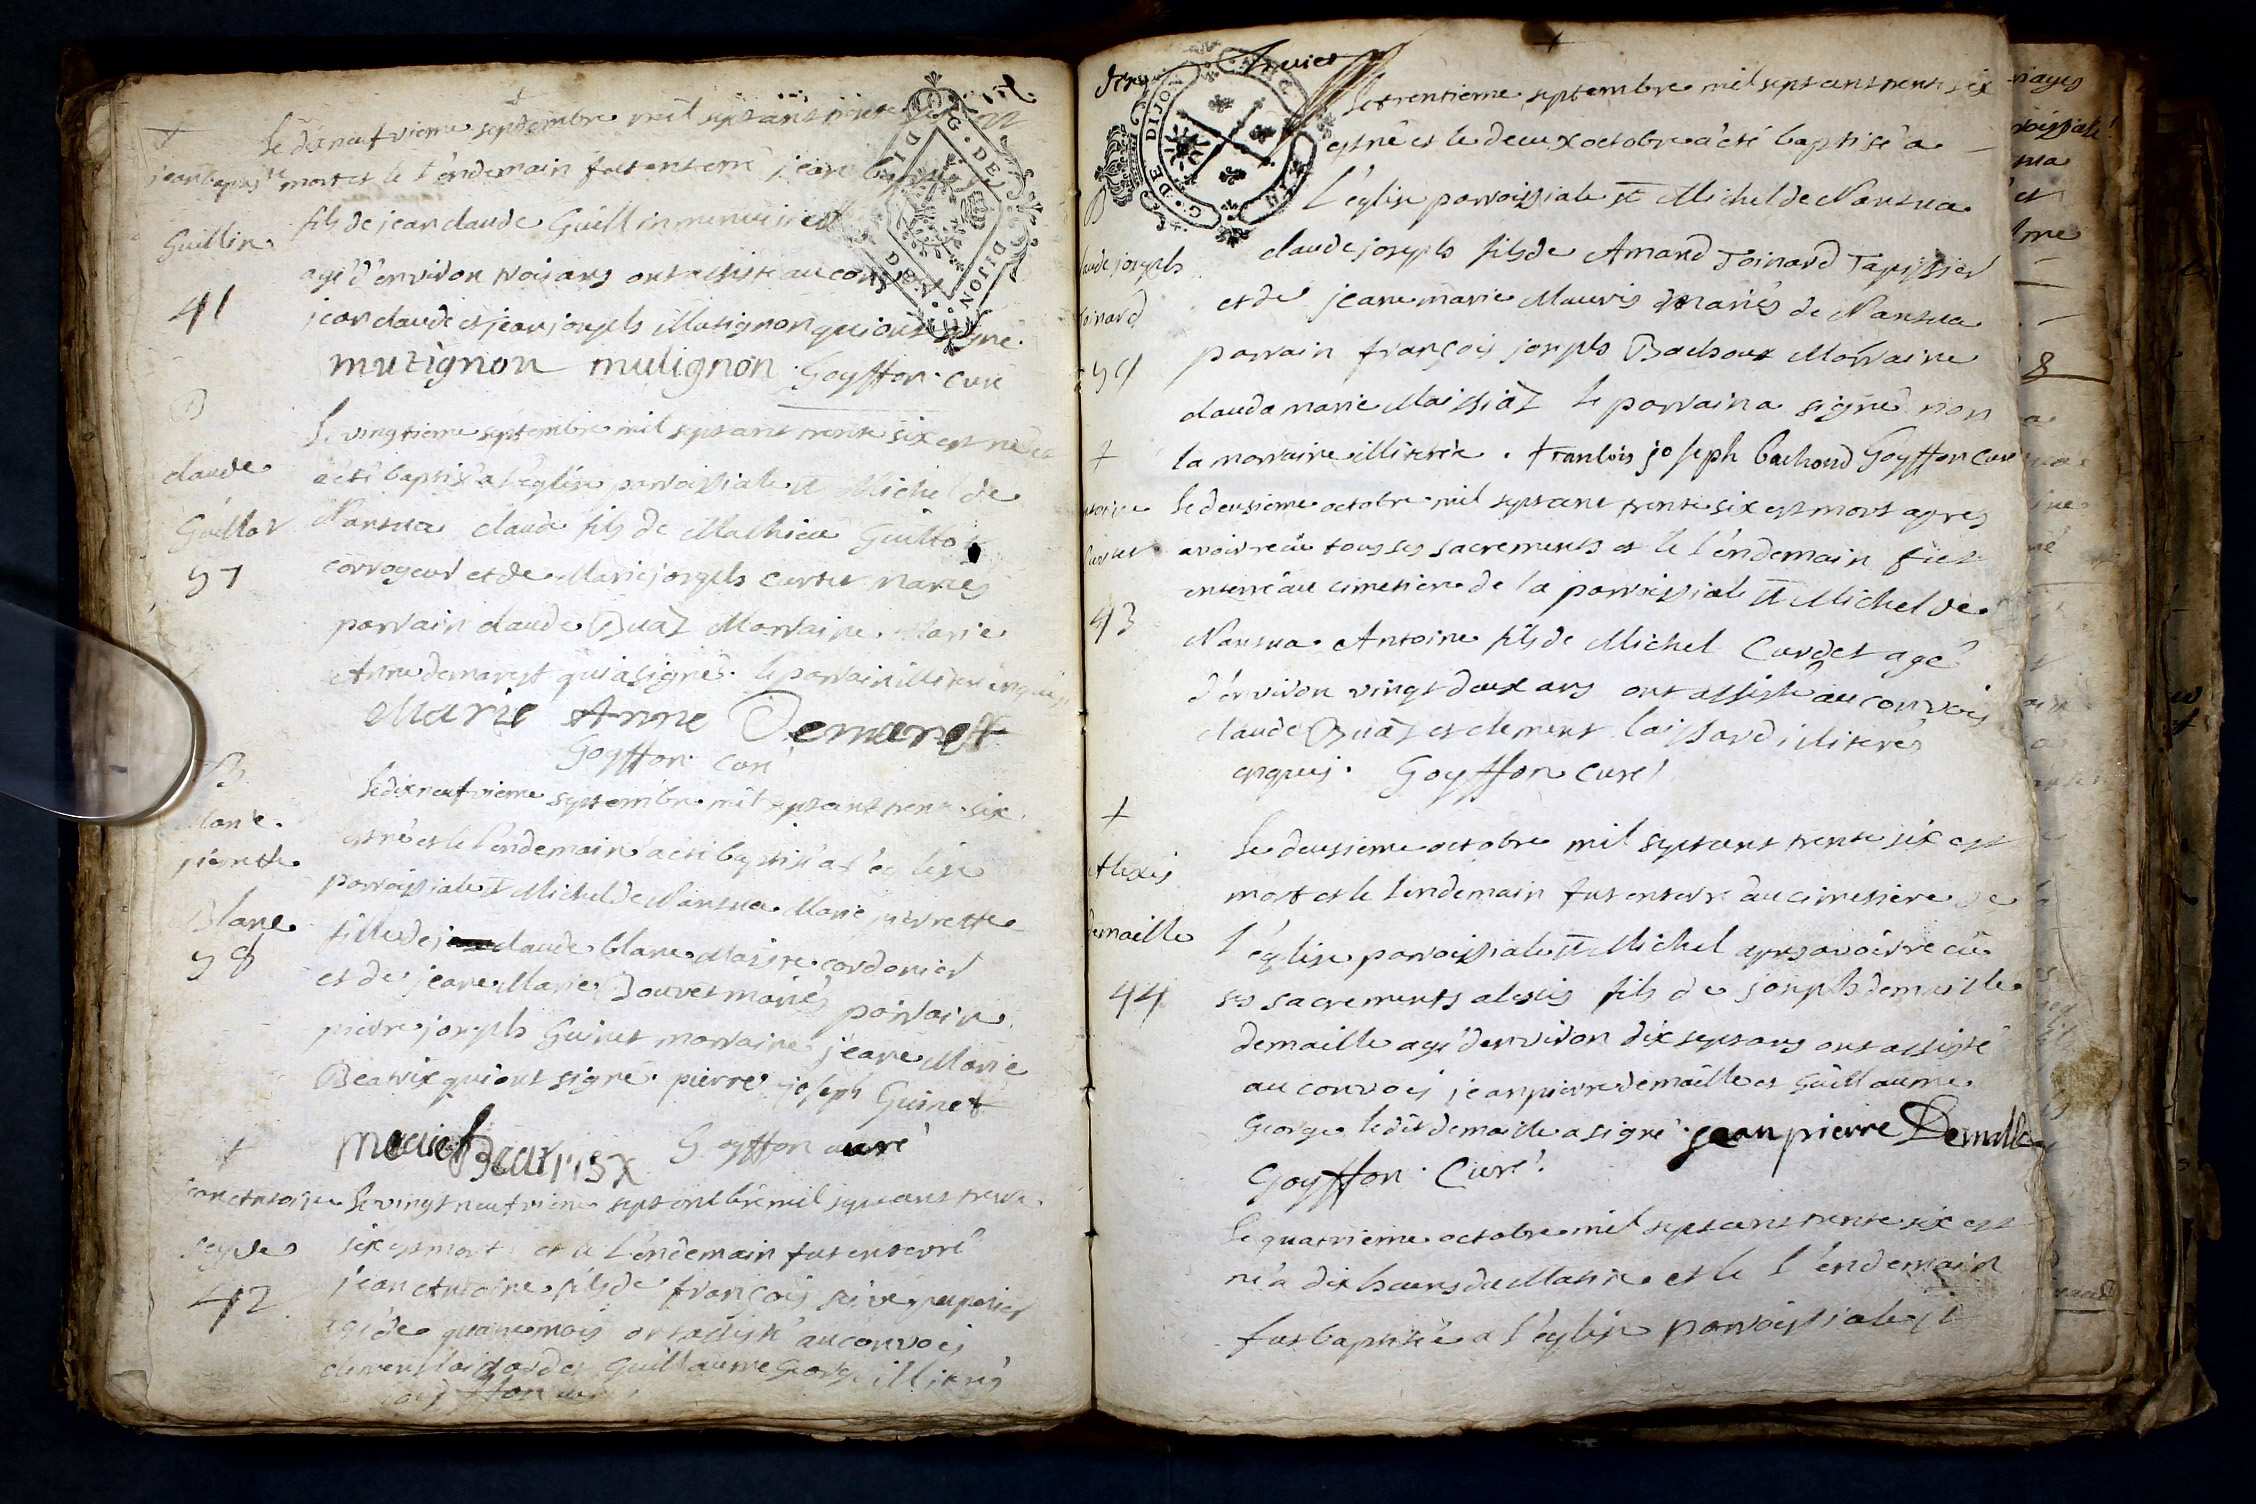 +
jean baptiste
Guillin
41
Le dixneufvieme septembre mil sept cents trente six est
mort et le l'endemain fut enterré jean baptiste
fils de jean claude Guillin menuisier
agé d'environ trois ans ont assisté au convoi
jean claude et jean joseph Mutignon qui ont signé.
mutignon mutignon Goyffon curé
B
claude
Guillot
57
Le vingtieme septembre mil sept cents trente six est né et
a été baptisé a l'eglise parroissiale st Michel de
Nantua claude fils de Mathieu Guillot
corroyeur et de Marie joseph Curtet mariés
parrain claude Buaz Marraine Marie
Anne demarest qui a signé. le parrain illiteré enquis
Marie Anne Demarest
Goyffon curé
B
Marie
pierrette
Blanc
58
Le dixneufvieme septembre mil sept cents trente six
est né et le l'endemain a été baptisé a l'eglise
parroissiale st Michel de Nantua Marie pierrette
fille de claude blanc Maitre cordonier
et de jeane Marie Bouvet mariés parrain
pierre joseph Guinet marraine jeane Marie
Beatrix qui ont signé. pierre joseph Guinet
Beatrix Goyffon curé
+
jean Antoine
42
Le vingt neufvieme septembre mil sept cents trente
six est mort et le l'endemain fut enterré
jean Antoine fils de françois papetier
agé de quatre mois ont assisté au convoi
clement et Guillaume George illiterés
Goyffon curé
+
B
claude joseph
Toinard
59
Le trentieme septembre mil sept cents trente six
est né et le deux octobre a été baptisé a
l'eglise parroissiale st Michel de Nantua
claude joseph fils de Amand Toinard Tapissier
et de jeane marie Mauris mariés de Nantua
parrain françois joseph Bachoud Marraine
clauda marie Maissiaz le parrain a signé non
la marraine illiterée. francois joseph bachoud Goyffon Curé
+
Antoine
Curtet
43
Le deusieme octobre mil sept cent trente six est mort apres
avoir reçu tous ses sacrements et le l'endemain fut
enterré au cimetiere de la parroissiale st Michel de
Nantua Antoine fils de Michel Curtet agé
d'environ vingt deux ans ont assisté au convois
claude Buaz et clement laissard illiterés
enquis. Goyffon curé
+
Alexis
demaille
44
Le deusieme octobre mil sept cents trente six est
mort et le lendemain fut enterré au cimetiere de
l'eglise parroissiale st Michel apres avoir reçu
ses sacrements alexis fils de joseph demaille
demaille agé d'environ dix sept ans ont assisté
au convois jean pierre demaille et Guillaume
George ledit demaille a signé. jean pierre Demaille
Goyffon. Curé.
Le quatrieme octobre mil sept cents trente six est
né a dix heures du Matin et le l'endemain
fut baptisé a l'eglise parroissiale st